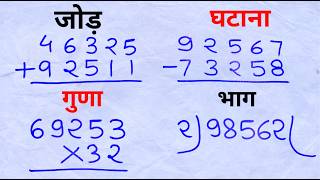 जोड़
46325
+92511
घटाना
92567
-73258
गुणा
69253
×32
भाग
2)98562(